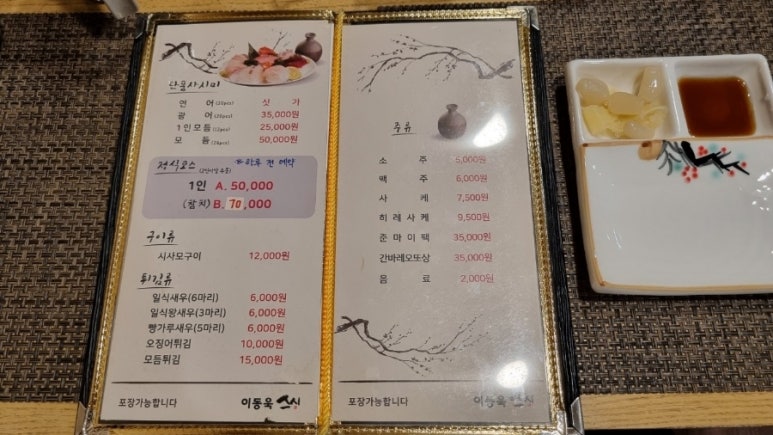 단품사시미
연 어 (20pcs) 싯 가
광 어 (20pcs) 35,000원
1인모듬 (12pcs) 25,000원
모 듬 (24pcs) 50,000원
정식코스 (2인이상 주문) ※하루 전 예약
1인 A. 50,000
(참치) B. 70,000
구이류
시사모구이 12,000원
튀김류
일식새우(6마리) 6,000원
일식왕새우(3마리) 6,000원
빵가루새우(5마리) 6,000원
오징어튀김 10,000원
모듬튀김 15,000원
포장가능합니다 이동욱 스시
주류
소 주 5,000원
맥 주 6,000원
사 케 7,500원
히레사케 9,500원
준마이팩 35,000원
간바레오또상 35,000원
음 료 2,000원
포장가능합니다 이동욱 스시